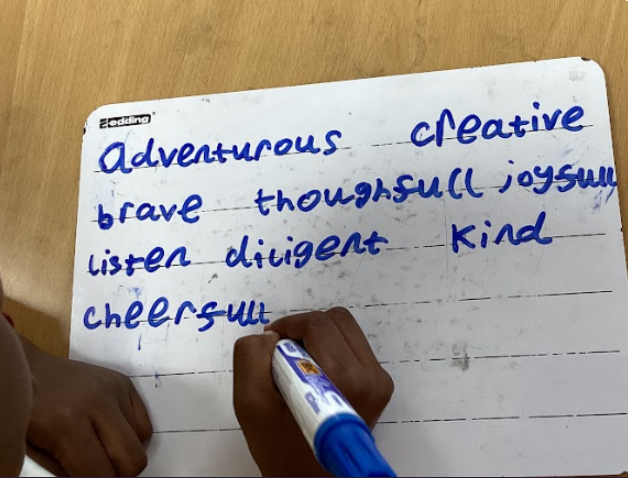 edding
adventurous creative
brave thoughfull joyfull
listen diligent kind
cheerfull